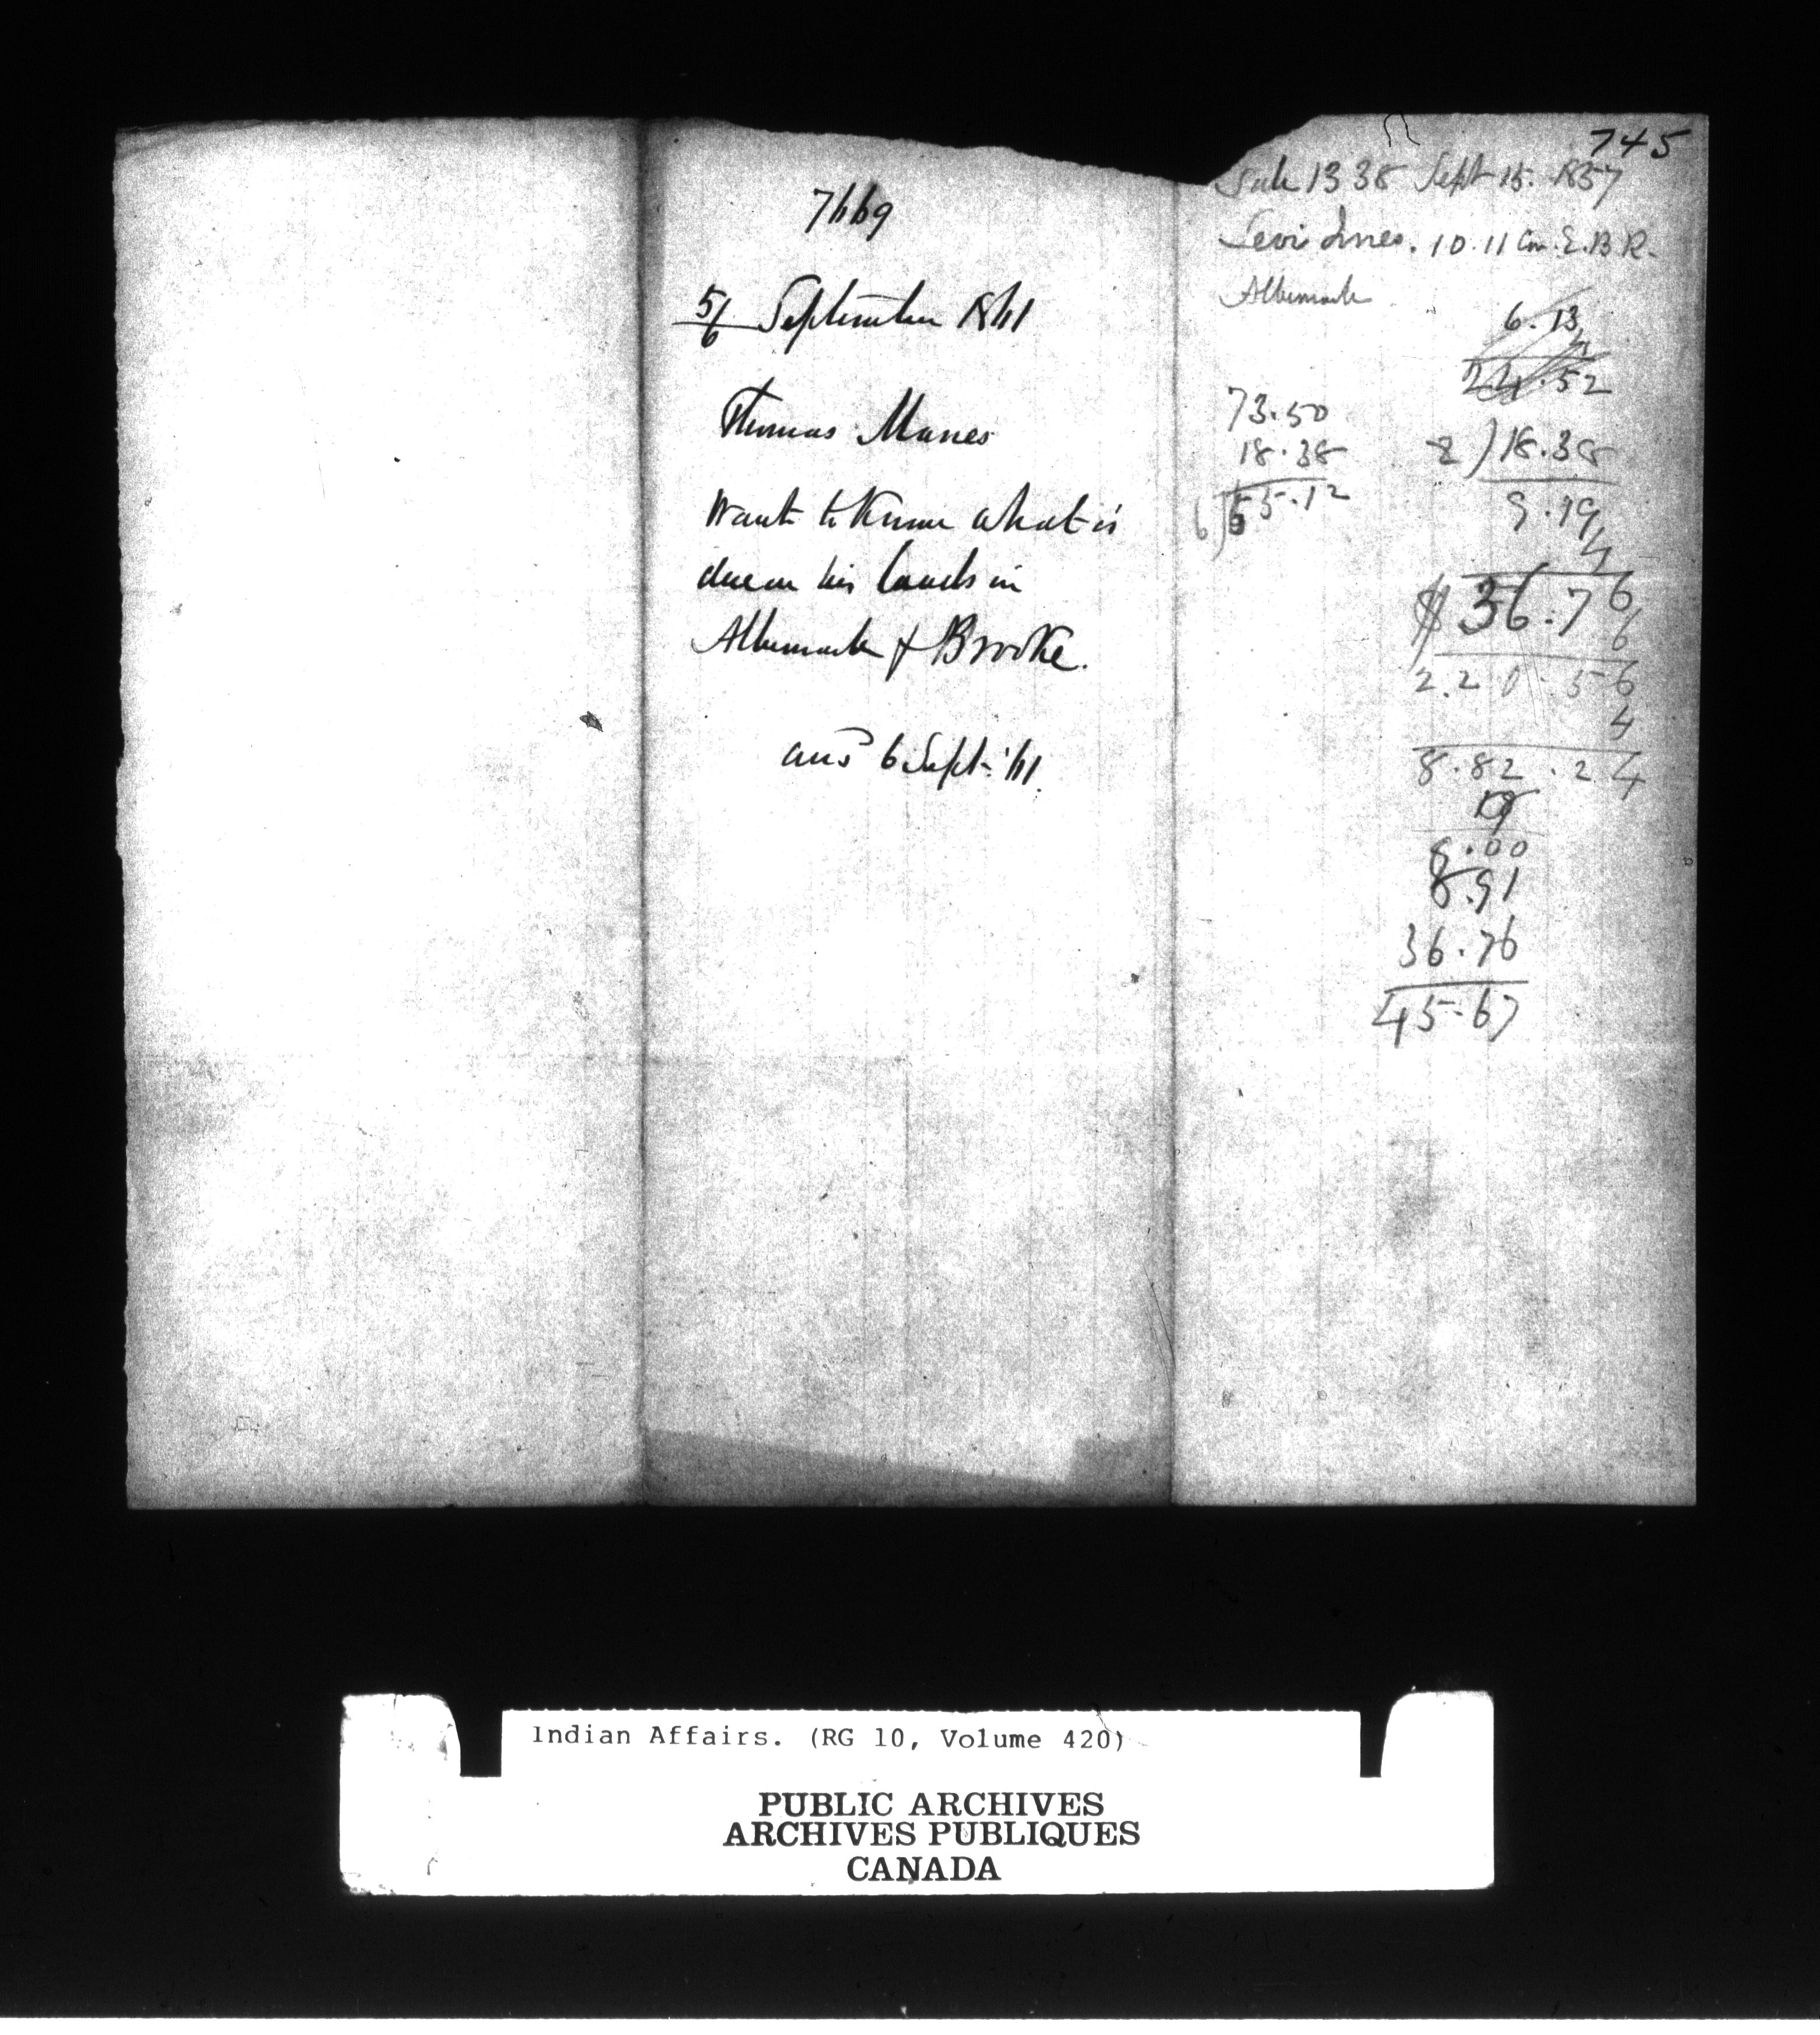 745
7669
5/6 September 1861
Thomas Manes
Wants to Know what is
due on his lands in
Albemarle & Brooke.
ansd 6 Sept. '61.
Sale 1338 Sept 15. 1857
Levi Innes. 10.11 Con. E.B.R.
Albemarle
6.13
4
24.52
73.50
18.38
6)55.12
2)18.38
9.19
4
$36.76
6
2.20.56
4
8.82.24
8.00
8.91
36.76
45.67
Indian Affairs. (RG 10, Volume 420)
PUBLIC ARCHIVES
ARCHIVES PUBLIQUES
CANADA